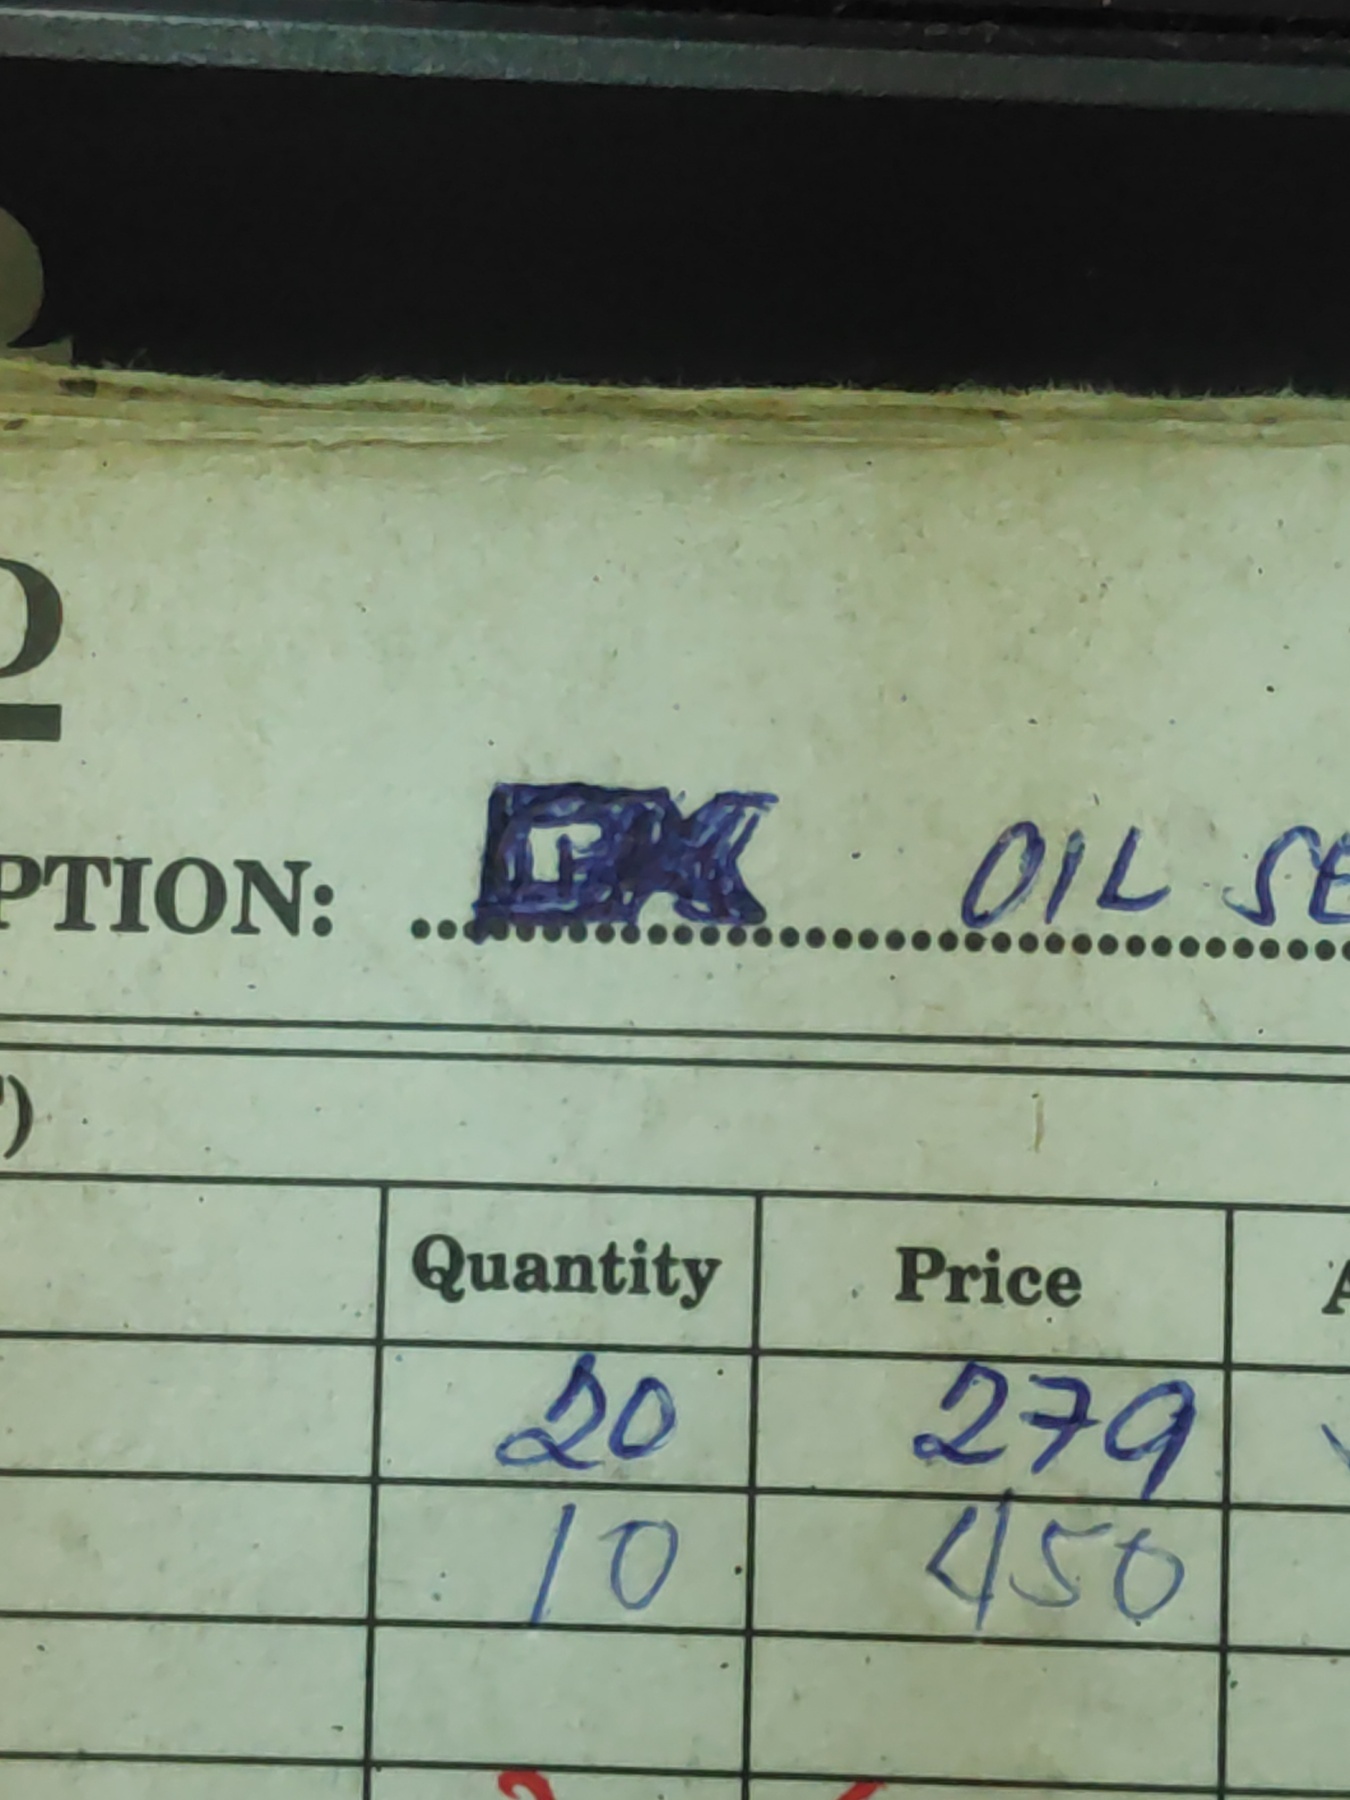 PTION: OIL SE
Quantity Price
20 279
10 450